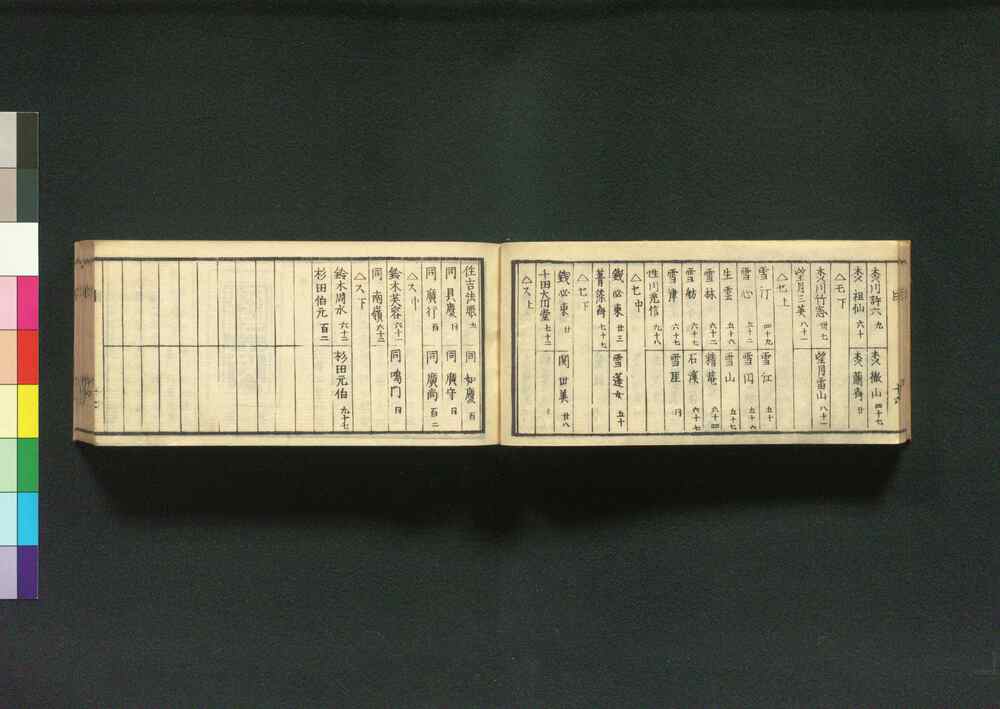 森川許六 九
森徹山 四十七
森祖仙 六十
森蘭斎 廿
△モ下
森川竹窓 卅七
望月三英 八十一
望月雷山 八十一
△セ上
雪汀 四十九
雪江 五十
雪心 五十二
雪同
生雲 五十八
雪山 五十七
雪林 六十二
精菴 六十四
雪舫 六十七
石漢 六十七
雪津 六十七
雪崖 同
性川光信 九十八
△セ中
銭必東 廿三
雪蓬女 五十
菁藻斎 七十七
△セ下
銭必東 廿
関田美 廿八
千田大川堂 七十二
△ス上
住吉法眼 九
同如慶 百
同具慶 同
同廣守 同
同廣行 百
同廣尚 百二
△ス中
鈴木芙蓉 六十一
同鳴門 同
同南嶺 六十三
△ス下
鈴木周水 六十三
杉田元伯 九十七
杉田伯元 百二